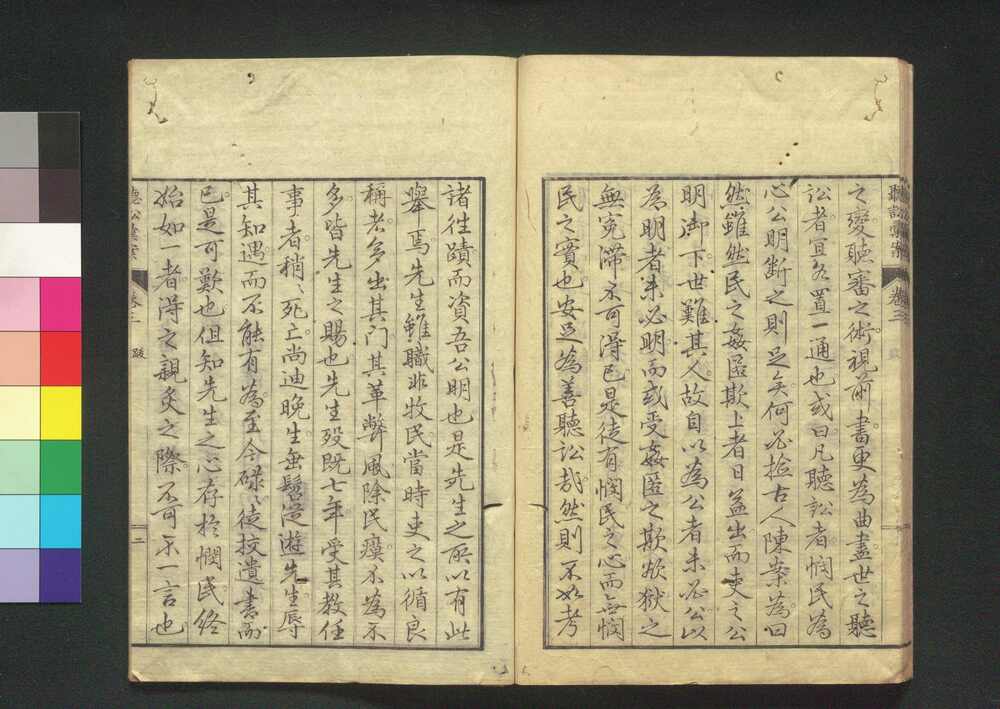 聽訟彙案 卷三
之變聽審之術視前書更為曲盡世之聽
訟者宜各置一通也或曰凡聽訟者憫民為
心公明斷之則足矣何必撿古人陳案為曰
然雖然民之姦匿欺上者日益出而吏之公
明御下世難其人故自以為公者未必公以
為明者未必明而或受姦匿之欺姑獄之
無寃滯不可得已是徒有憫民之心而無憫
民之實也安足為善聽訟哉然則不如考
諸往蹟而資吾公明也是先生之所以有此
舉焉先生雖職非牧民當時吏之以循良
稱者多出其門其革弊風除民瘼不為不
多皆先生之賜也先生歿既七年受其教任
事者稍〻死亡尚迪晚生無髫從遊先生辱
其知遇而不能有為至今碌〻徒抆遺書而
已是可歎也但知先生之心存於憫民終
始如一者得之親炙之際不可不一言也
聽訟彙案 卷三 跋 二